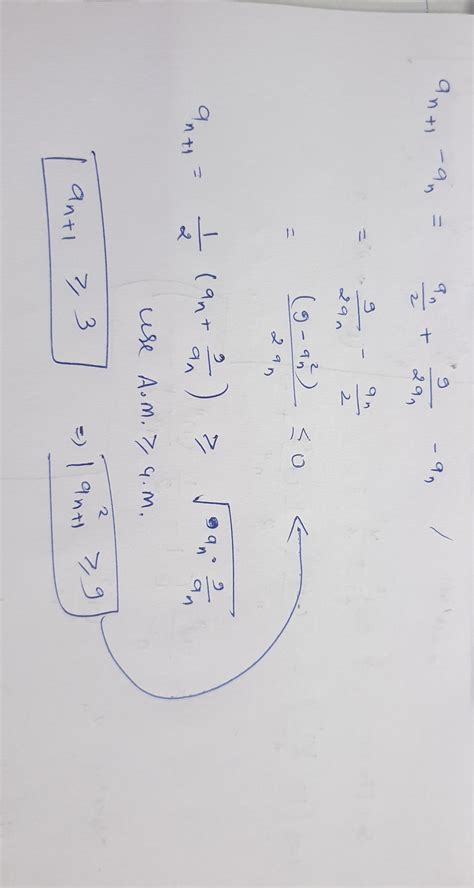 a_{n+1} - a_n = a_n/2 + 9/2a_n - a_n /
= 9/2a_n - a_n/2
= (9 - a_n^2)/2a_n ≤ 0
a_{n+1} = 1/2 (a_n + 9/a_n) ≥ √(a_n · 9/a_n)
use A.M. ≥ G.M.
a_{n+1} ≥ 3 ⇒ a_{n+1}^2 ≥ 9